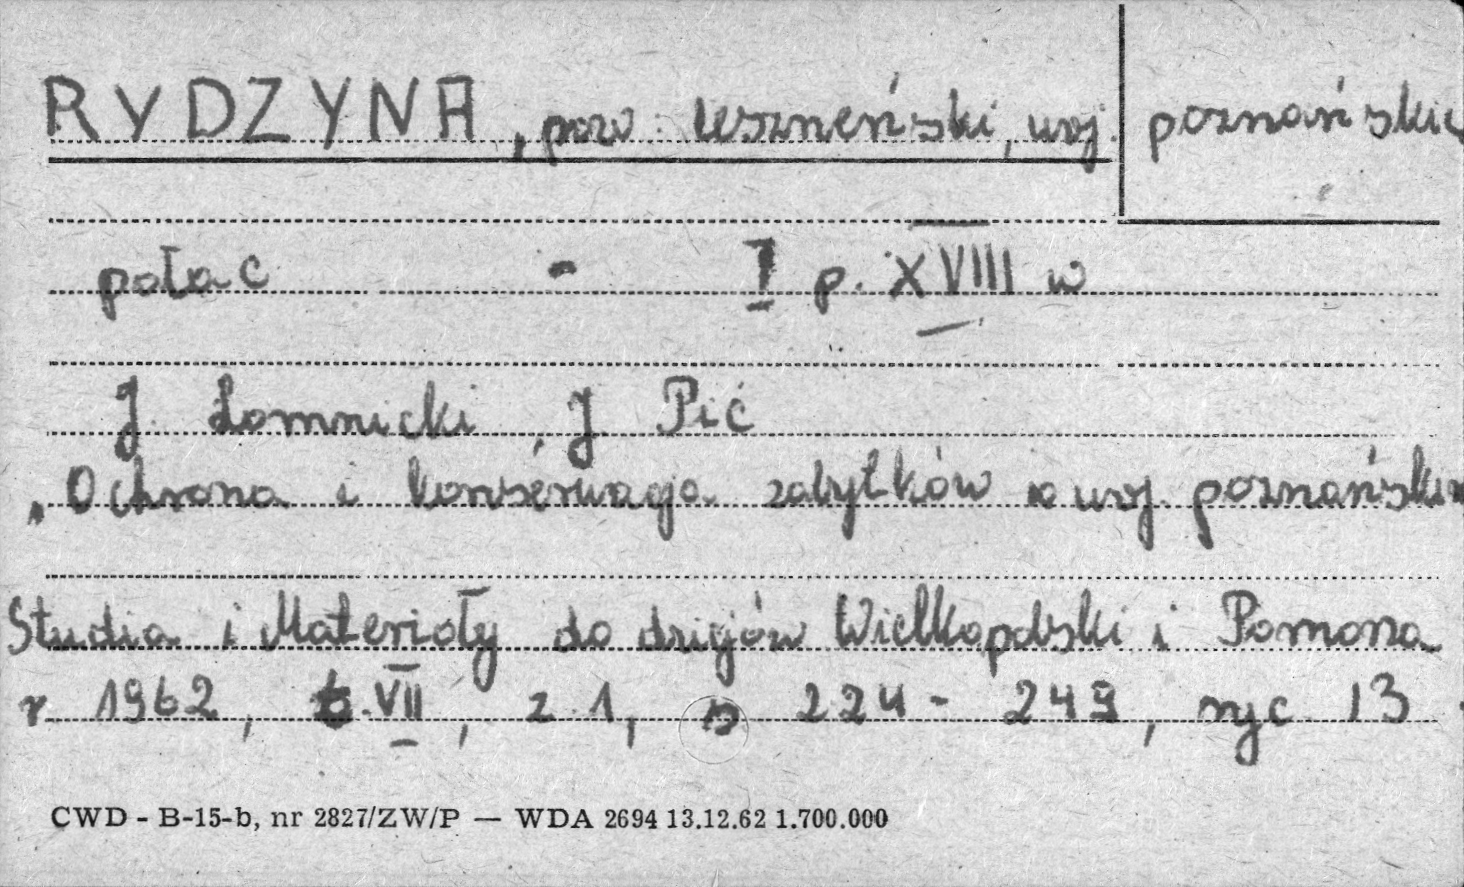 RYDZYNA, pow. leszneński, woj. poznańskie
pałac - I p. XVIII w
J. Łomnicki, J. Pić
„Ochrona i konserwacja zabytków w woj. poznańskim
Studia i Materiały do dziejów Wielkopolski i Pomorza
r 1962, t. VII, z 1, s 224-249, ryc 13.
CWD - B-15-b, nr 2827/ZW/P — WDA 2694 13.12.62 1.700.000